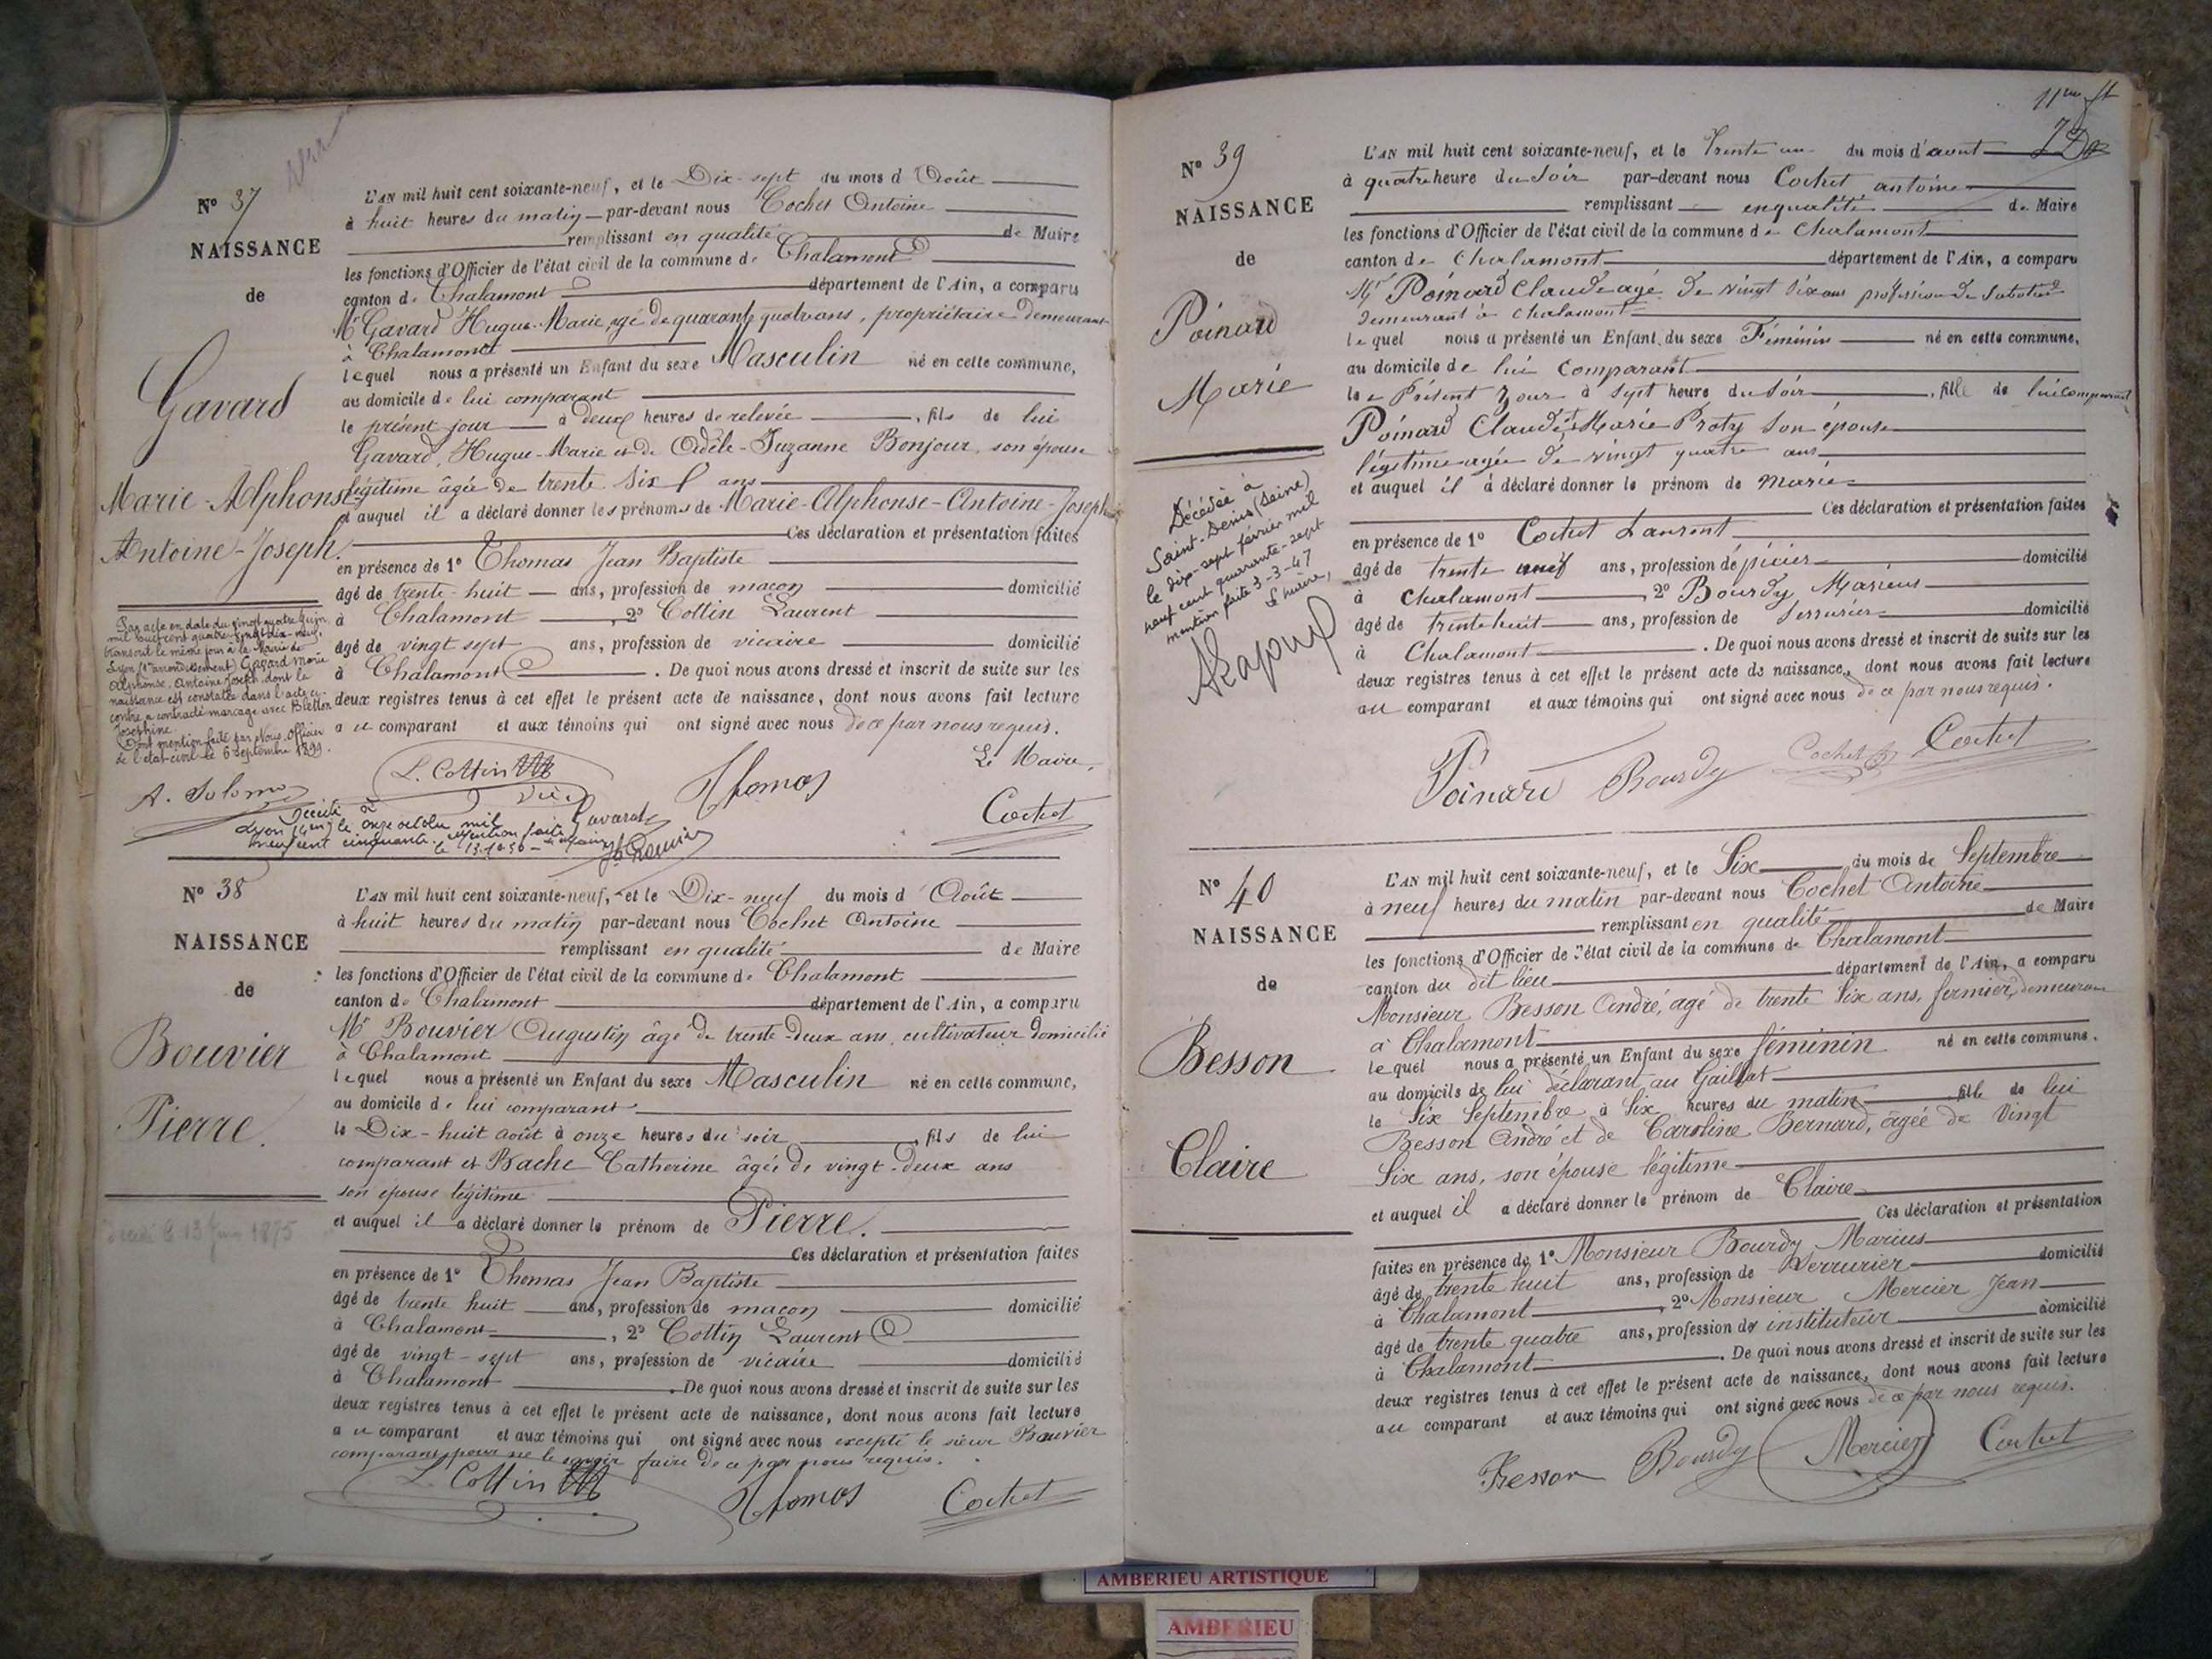 N° 37
NAISSANCE
de
Gavard
Marie-Alphonse
Antoine-Joseph.
Par acte en date du vingt quatre Juin
mil huit cent quatre-vingt dix-neuf,
transcrit le même jour à la Mairie de
Lyon arrondissement) Gavard Marie
Alphonse, Antoine Joseph dont la
naissance est constatée dans l'acte ci-
contre a contracté mariage avec Bletton
Joséphine.
Dont mention faite par Nous, Officier
de l'état-civil le 6 septembre 1899.
L'AN mil huit cent soixante-neuf, et le Dix-sept du mois d'Août
à huit heures du matin par-devant nous Cochet Antoine
remplissant en qualité de Maire
les fonctions d'Officier de l'état civil de la commune de Chalamont
canton de Chalamont département de l'Ain, a comparu
Mr Gavard Hugue-Marie agé de quarante quatre ans, propriétaire demeurant
à Chalamont
lequel nous a présenté un Enfant du sexe Masculin né en cette commune,
au domicile de lui comparant
le présent jour à deux heures de relevée, fils de lui
Gavard, Hugue-Marie et de Adèle-Suzanne Bonjour, son épouse
légitime âgée de trente six ans
et auquel il a déclaré donner les prénoms de Marie-Alphonse-Antoine-Joseph
Ces déclaration et présentation faites
en présence de 1° Thomas Jean Baptiste
âgé de trente-huit ans, profession de maçon domicilié
à Chalamont, 2° Cottin Laurent
âgé de vingt sept ans, profession de vicaire domicilié
à Chalamont. De quoi nous avons dressé et inscrit de suite sur les
deux registres tenus à cet effet le présent acte de naissance, dont nous avons fait lecture
au comparant et aux témoins qui ont signé avec nous de ce par nous requis.
Le Maire,
L. Cottin
Thomas
Cochet
Gavard
Décédé à
Lyon le onze octobre mil
neuf cent cinquante. Mention faite
N° 38
NAISSANCE
de
Bouvier
Pierre.
décédé le 13 1875
L'AN mil huit cent soixante-neuf, et le Dix-neuf du mois d'Août
à huit heures du matin par-devant nous Cochet Antoine
remplissant en qualité de Maire
les fonctions d'Officier de l'état civil de la commune de Chalamont
canton de Chalamont département de l'Ain, a comparu
Mr Bouvier Augustin âgé de trente-deux ans, cultivateur domicilié
à Chalamont
lequel nous a présenté un Enfant du sexe Masculin né en cette commune,
au domicile de lui comparant
le Dix-huit août à onze heures du soir, fils de lui
comparant et Bache Catherine âgée de vingt-deux ans
son épouse légitime
et auquel il a déclaré donner le prénom de Pierre.
Ces déclaration et présentation faites
en présence de 1° Thomas Jean Baptiste
âgé de trente huit ans, profession de maçon domicilié
à Chalamont, 2° Cottin Laurent
âgé de vingt-sept ans, profession de vicaire domicilié
à Chalamont. De quoi nous avons dressé et inscrit de suite sur les
deux registres tenus à cet effet le présent acte de naissance, dont nous avons fait lecture
au comparant et aux témoins qui ont signé avec nous excepté le sieur Bouvier
comparant pour ne le savoir faire de ce par nous requis.
L. Cottin
Thomas
Cochet
N° 39
NAISSANCE
de
Poinard
Marie
Décédée à
Saint-Denis (Seine)
le dix-sept février mil
neuf cent quarante-sept
mention faite 3-3-47
Le Maire,
L'AN mil huit cent soixante-neuf, et le Trente un du mois d'aout
à quatre heure du Soir par-devant nous Cochet antoine
remplissant en qualité de Maire
les fonctions d'Officier de l'état civil de la commune de Chalamont
canton de Chalamont département de l'Ain, a comparu
Mr Poinard Claude agé de vingt Six ans profession de Sabotier
demeurant à Chalamont
lequel nous a présenté un Enfant du sexe Féminin né en cette commune,
au domicile de lui Comparant
le Présent Jour à Sept heure du Soir, fille de lui comparant
Poinard Claude et Marie Proty Son épouse
légitime agée de vingt quatre ans
et auquel il a déclaré donner le prénom de Marie
Ces déclaration et présentation faites
en présence de 1° Cochet Laurent
âgé de trente neuf ans, profession d'épicier domicilié
à Chalamont, 2° Bourdy Marius
âgé de trente huit ans, profession de Serrurier domicilié
à Chalamont. De quoi nous avons dressé et inscrit de suite sur les
deux registres tenus à cet effet le présent acte de naissance, dont nous avons fait lecture
au comparant et aux témoins qui ont signé avec nous de ce par nous requis.
Poinard Bourdy Cochet Cochet
N° 40
NAISSANCE
de
Besson
Claire
L'AN mil huit cent soixante-neuf, et le Six du mois de Septembre
à neuf heures du matin par-devant nous Cochet Antoine
remplissant en qualité de Maire
les fonctions d'Officier de l'état civil de la commune de Chalamont
canton du dit lieu département de l'Ain, a comparu
Monsieur Besson André, agé de trente Six ans, fermier, demeurant
à Chalamont
lequel nous a présenté un Enfant du sexe féminin né en cette commune,
au domicile de lui déclarant au Gaillat
le Six Septembre à Six heures du matin fille de lui
Besson André et de Caroline Bernard, âgée de Vingt
Six ans, son épouse légitime
et auquel il a déclaré donner le prénom de Claire
Ces déclaration et présentation
faites en présence de 1° Monsieur Bourdy Marius
âgé de trente huit ans, profession de Serrurier domicilié
à Chalamont, 2° Monsieur Mercier Jean
âgé de trente quatre ans, profession de instituteur domicilié
à Chalamont. De quoi nous avons dressé et inscrit de suite sur les
deux registres tenus à cet effet le présent acte de naissance, dont nous avons fait lecture
au comparant et aux témoins qui ont signé avec nous de ce par nous requis.
Besson Bourdy Mercier Cochet
AMBERIEU ARTISTIQUE
AMBERIEU